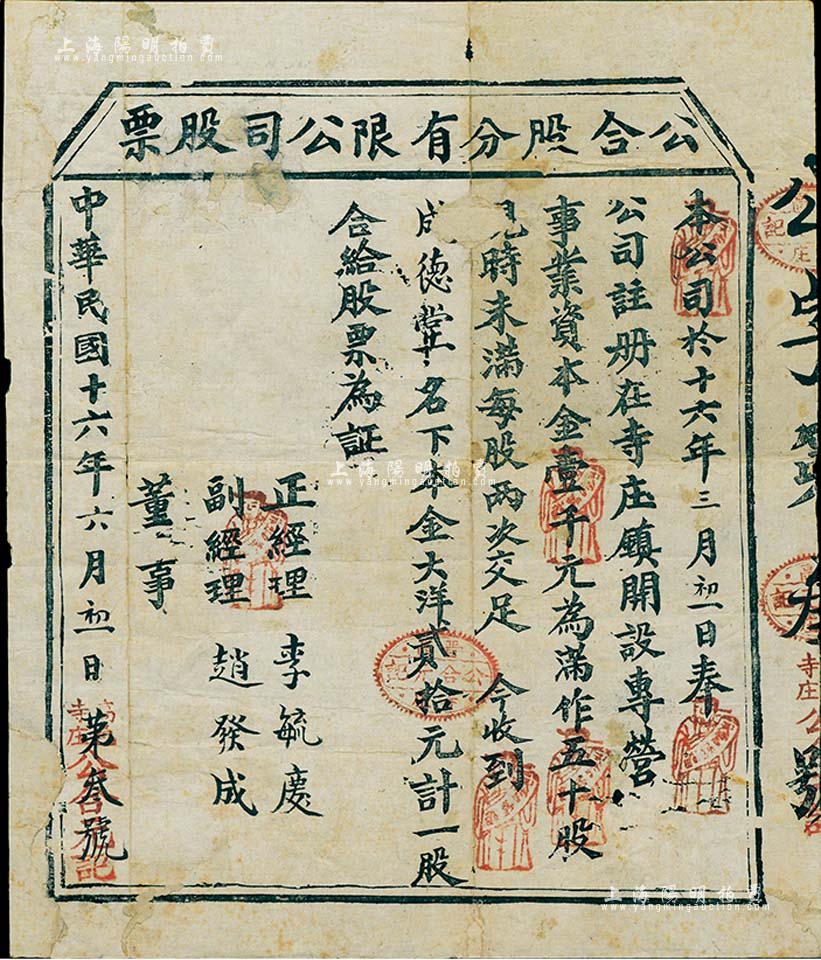 公合股分有限公司股票
本公司於十六年三月初一日奉
公司註册在寺庄鎮開設專營
事業資本金壹千元為滿作五十股
見時未滿每股兩次交足 今收到
成德堂名下本金大洋貳拾元計一股
合給股票為証
正經理 李毓慶
副經理 趙發成
董事
中華民國十六年六月初一日 第叁號
寺庄
公合
記
上海陽明拍賣
www.yangmingauction.com
上海陽明拍賣
www.yangmingauction.com
上海陽明拍賣
www.yangmingauction.com